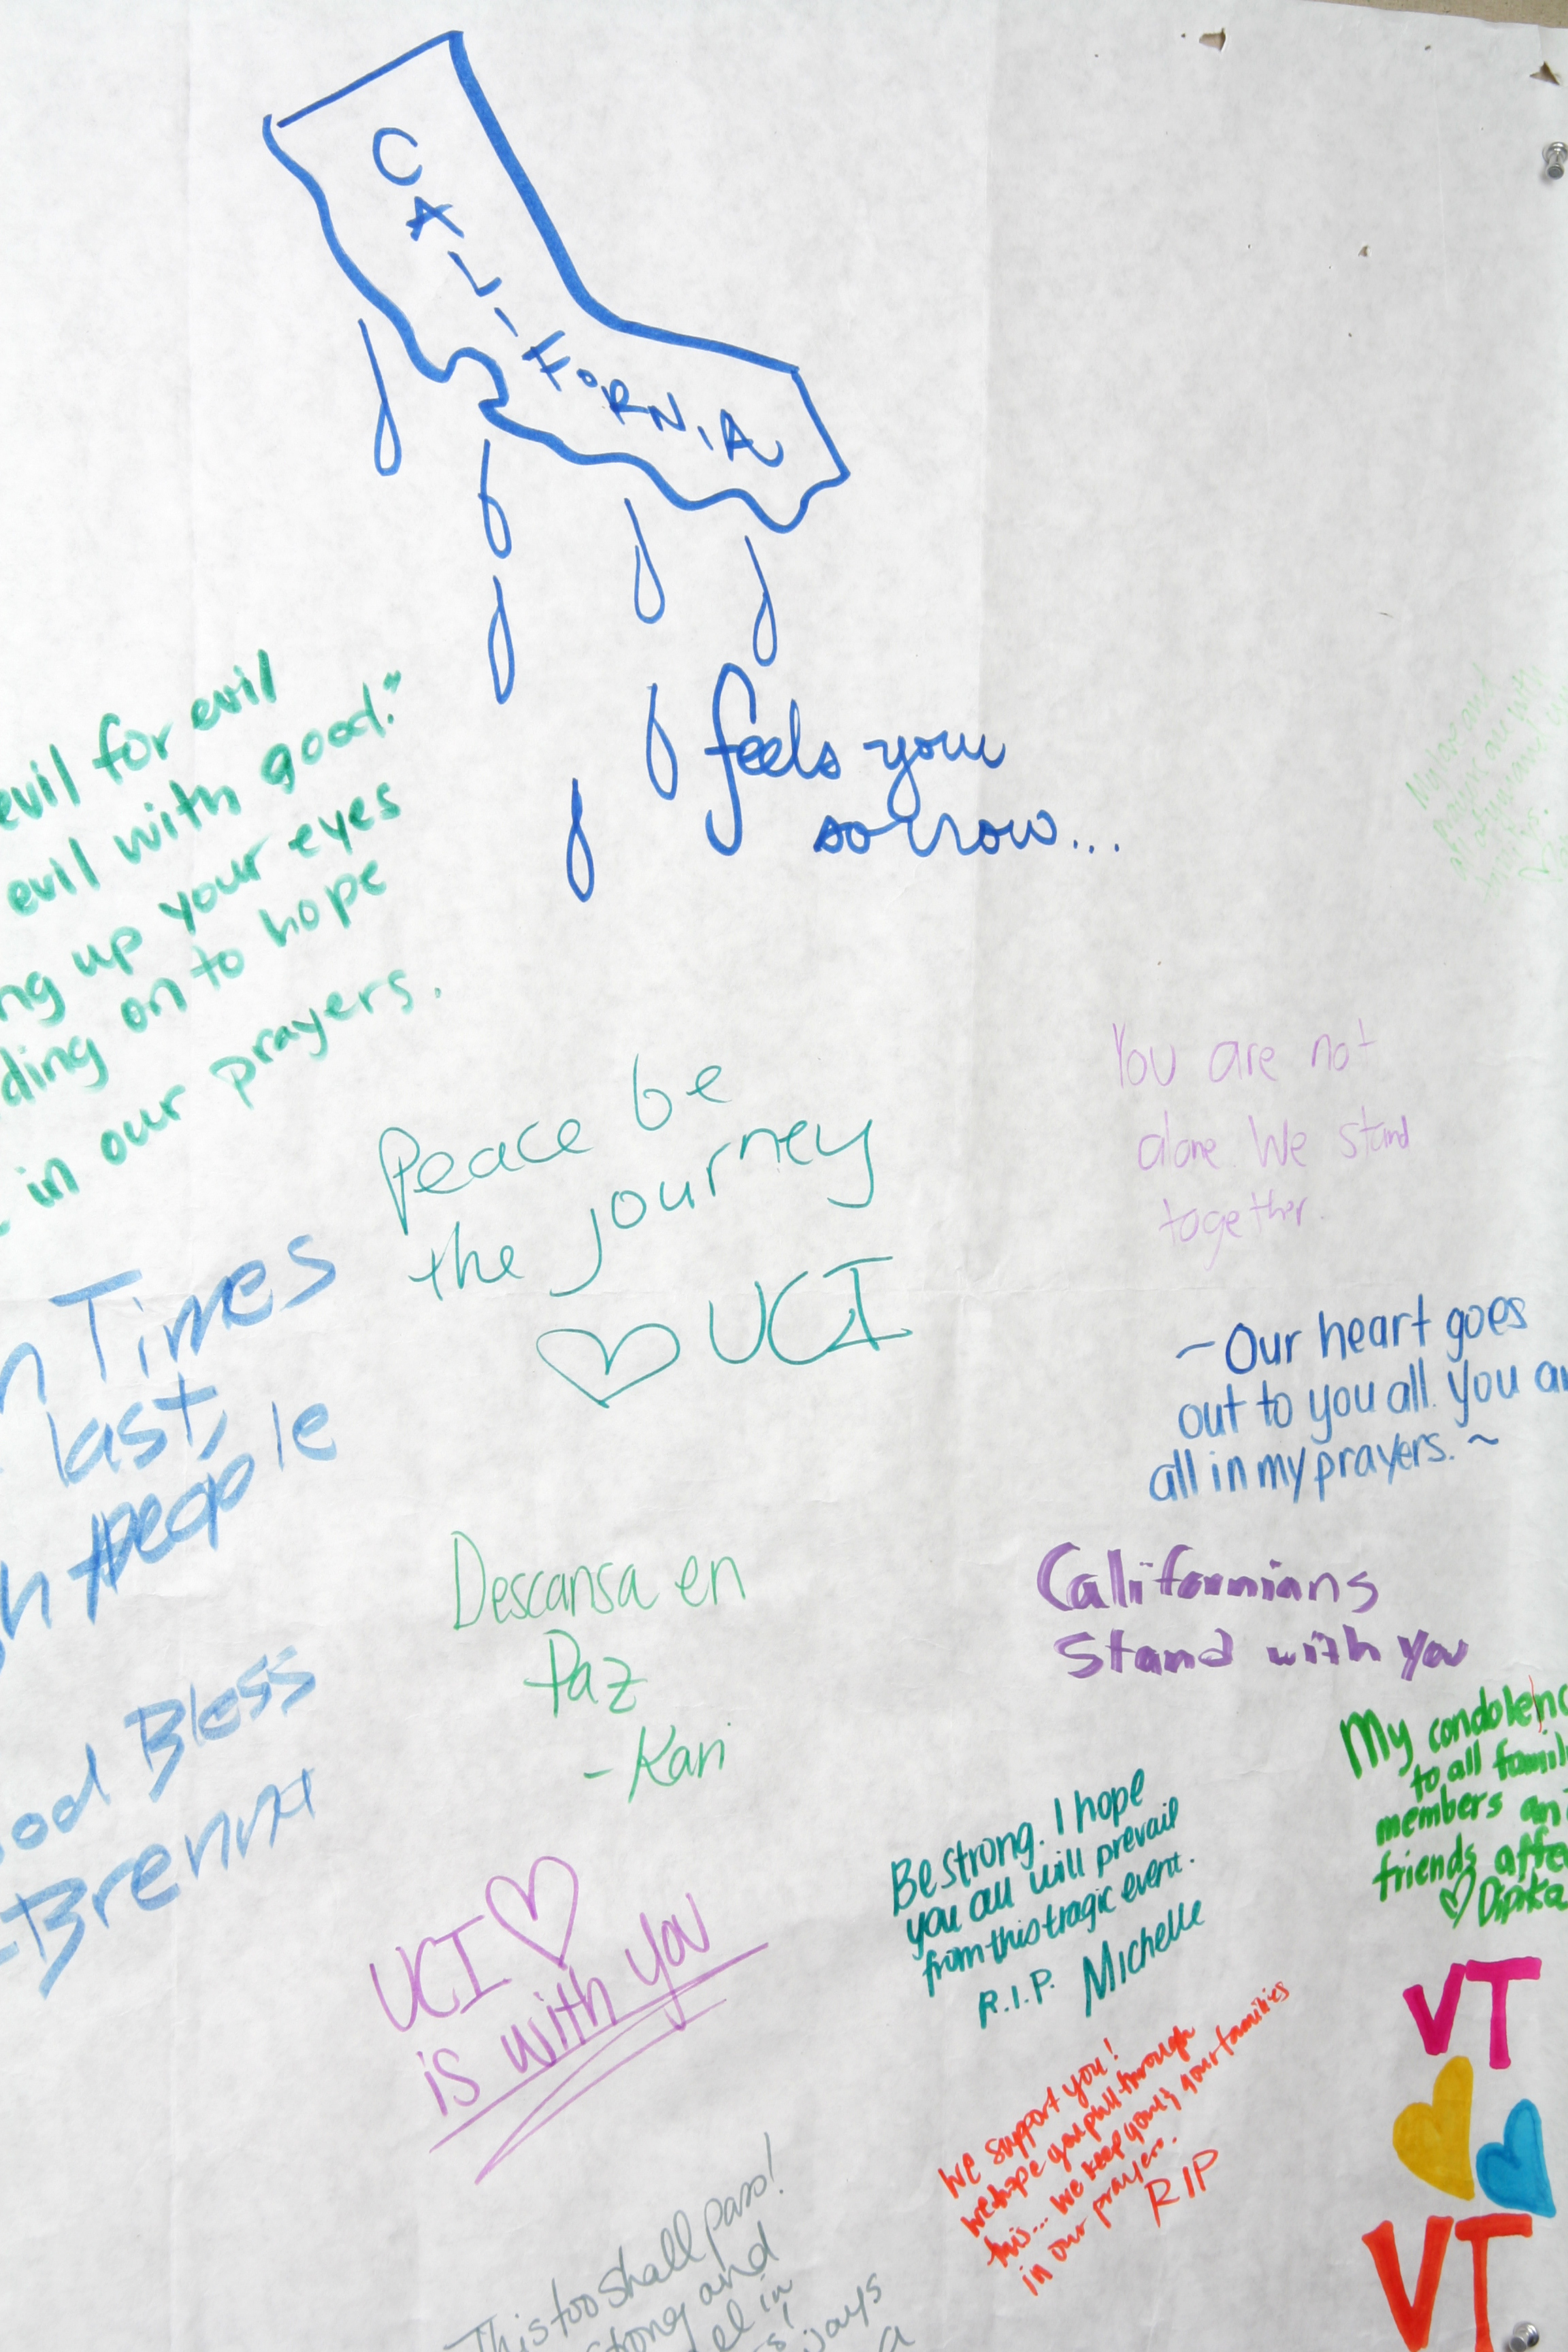 CALIFORNIA
feels your
sorrow...
evil for evil
evil with good."
ng up your eyes
ding on to hope
in our prayers.
Peace be
the journey
♡ UCI
You are not
alone. We stand
together.
n Times
last,
people
Bless
-Brenna
~Our heart goes
out to you all. You ar
all in my prayers.~
Descansa en
Paz
-Kari
Californians
Stand with You
My condolenc
to all famil
members an
friends affe
♡ Dipika
Be strong. I hope
you all will prevail
from this tragic event.
R.I.P. Michelle
UCI ♡
is with you
We support you!
we hope you pull through
this... we keep you & your families
in our prayers.
RIP
VT
VT
This too shall pass!
strong and
el in
ways
a